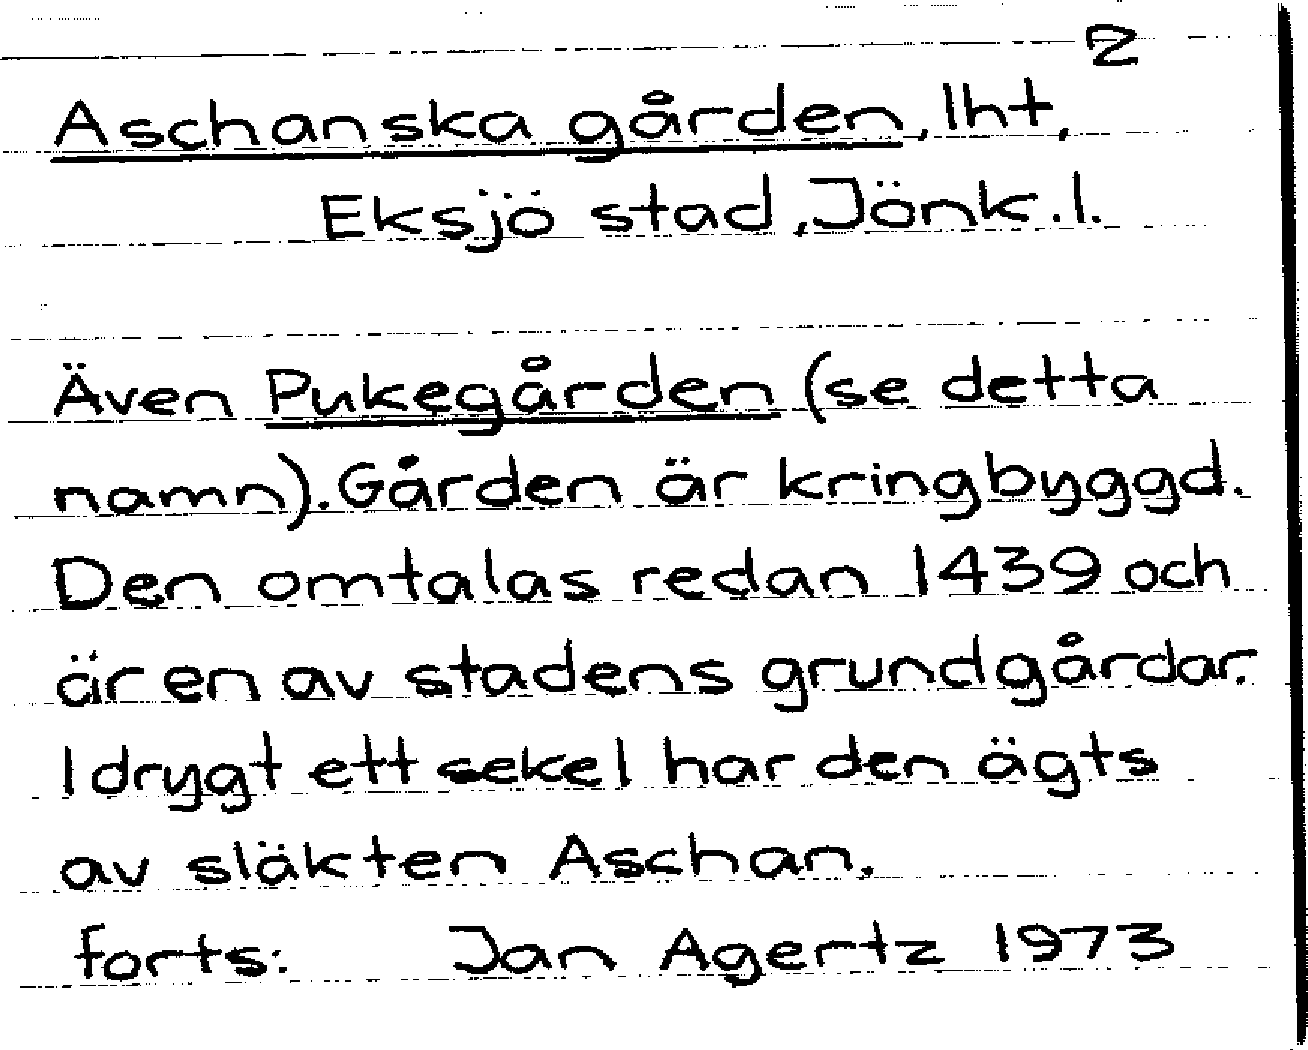 2
Aschanska gården, lht,
Eksjö stad, Jönk.l.
Även Pukegården (se detta
namn). Gården är kringbyggd.
Den omtalas redan 1439 och
är en av stadens grundgårdar.
I drygt ett sekel har den ägts
av släkten Aschan.
forts: Jan Agertz 1973